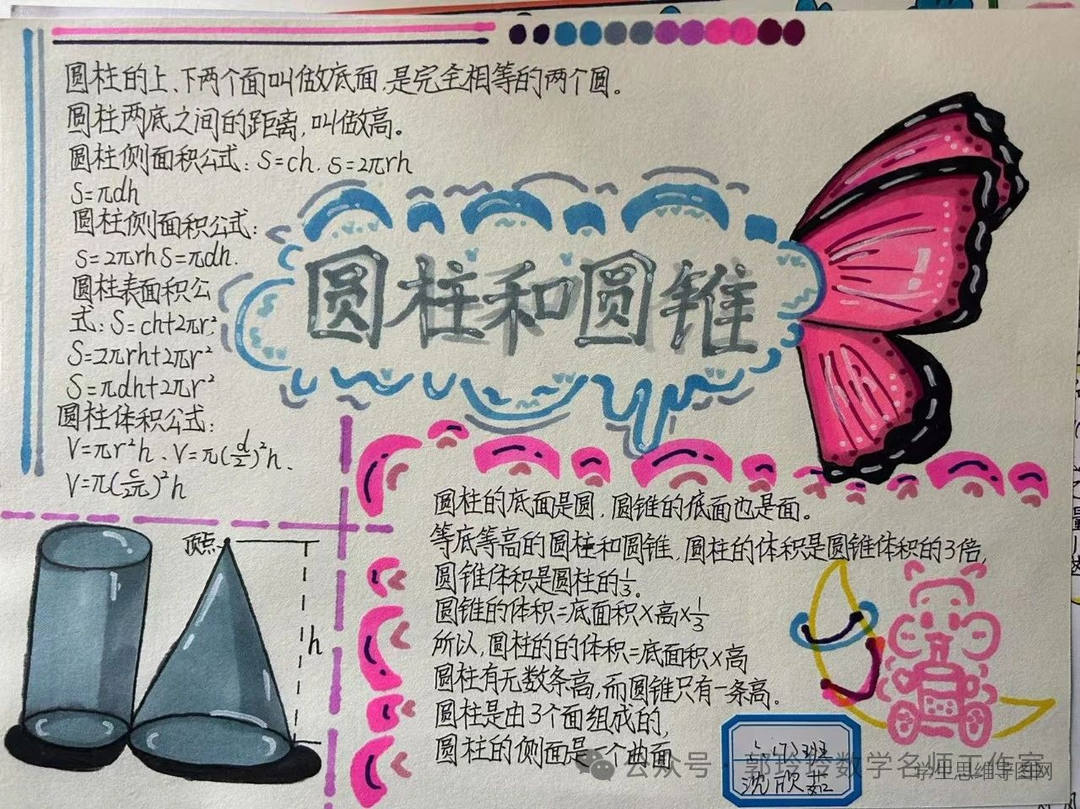 圆柱的上、下两个面叫做底面,是完全相等的两个圆。
圆柱两底之间的距离,叫做高。
圆柱侧面积公式:S=ch.S=2πrh
S=πdh
圆柱侧面积公式:
S=2πrh S=πdh.
圆柱表面积公
式:S=ch+2πr²
S=2πrh+2πr²
S=πdh+2πr²
圆柱体积公式:
V=πr²h、V=π(d/2)²h、
V=π(c/2π)²h
圆柱和圆锥
顶点
h
圆柱的底面是圆,圆锥的底面也是面。
等底等高的圆柱和圆锥,圆柱的体积是圆锥体积的3倍,
圆锥体积是圆柱的1/3.
圆锥的体积=底面积×高×1/3
所以,圆柱的的体积=底面积×高
圆柱有无数条高,而圆锥只有一条高。
圆柱是由3个面组成的,
圆柱的侧面是一个曲面
班
沈欣茹
公众号·郭玲玲数学名师工作室
学生思维导图网